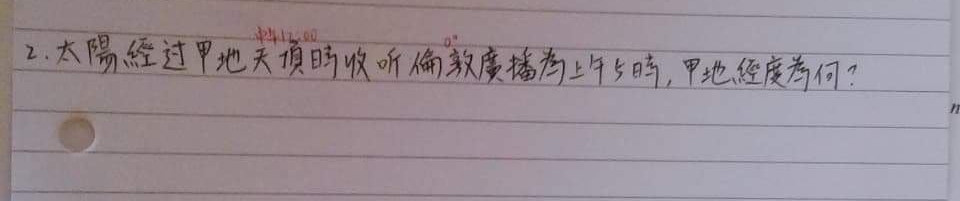 中午12:00 0°
2.太陽經过甲地天頂時收听倫敦廣播為上午5時,甲地經度為何?
n